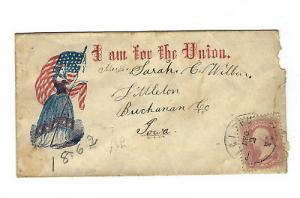 I am for the Union.
Miss Sarah C. Wilbur
Littleton
Buchanan Co
Iowa
1862